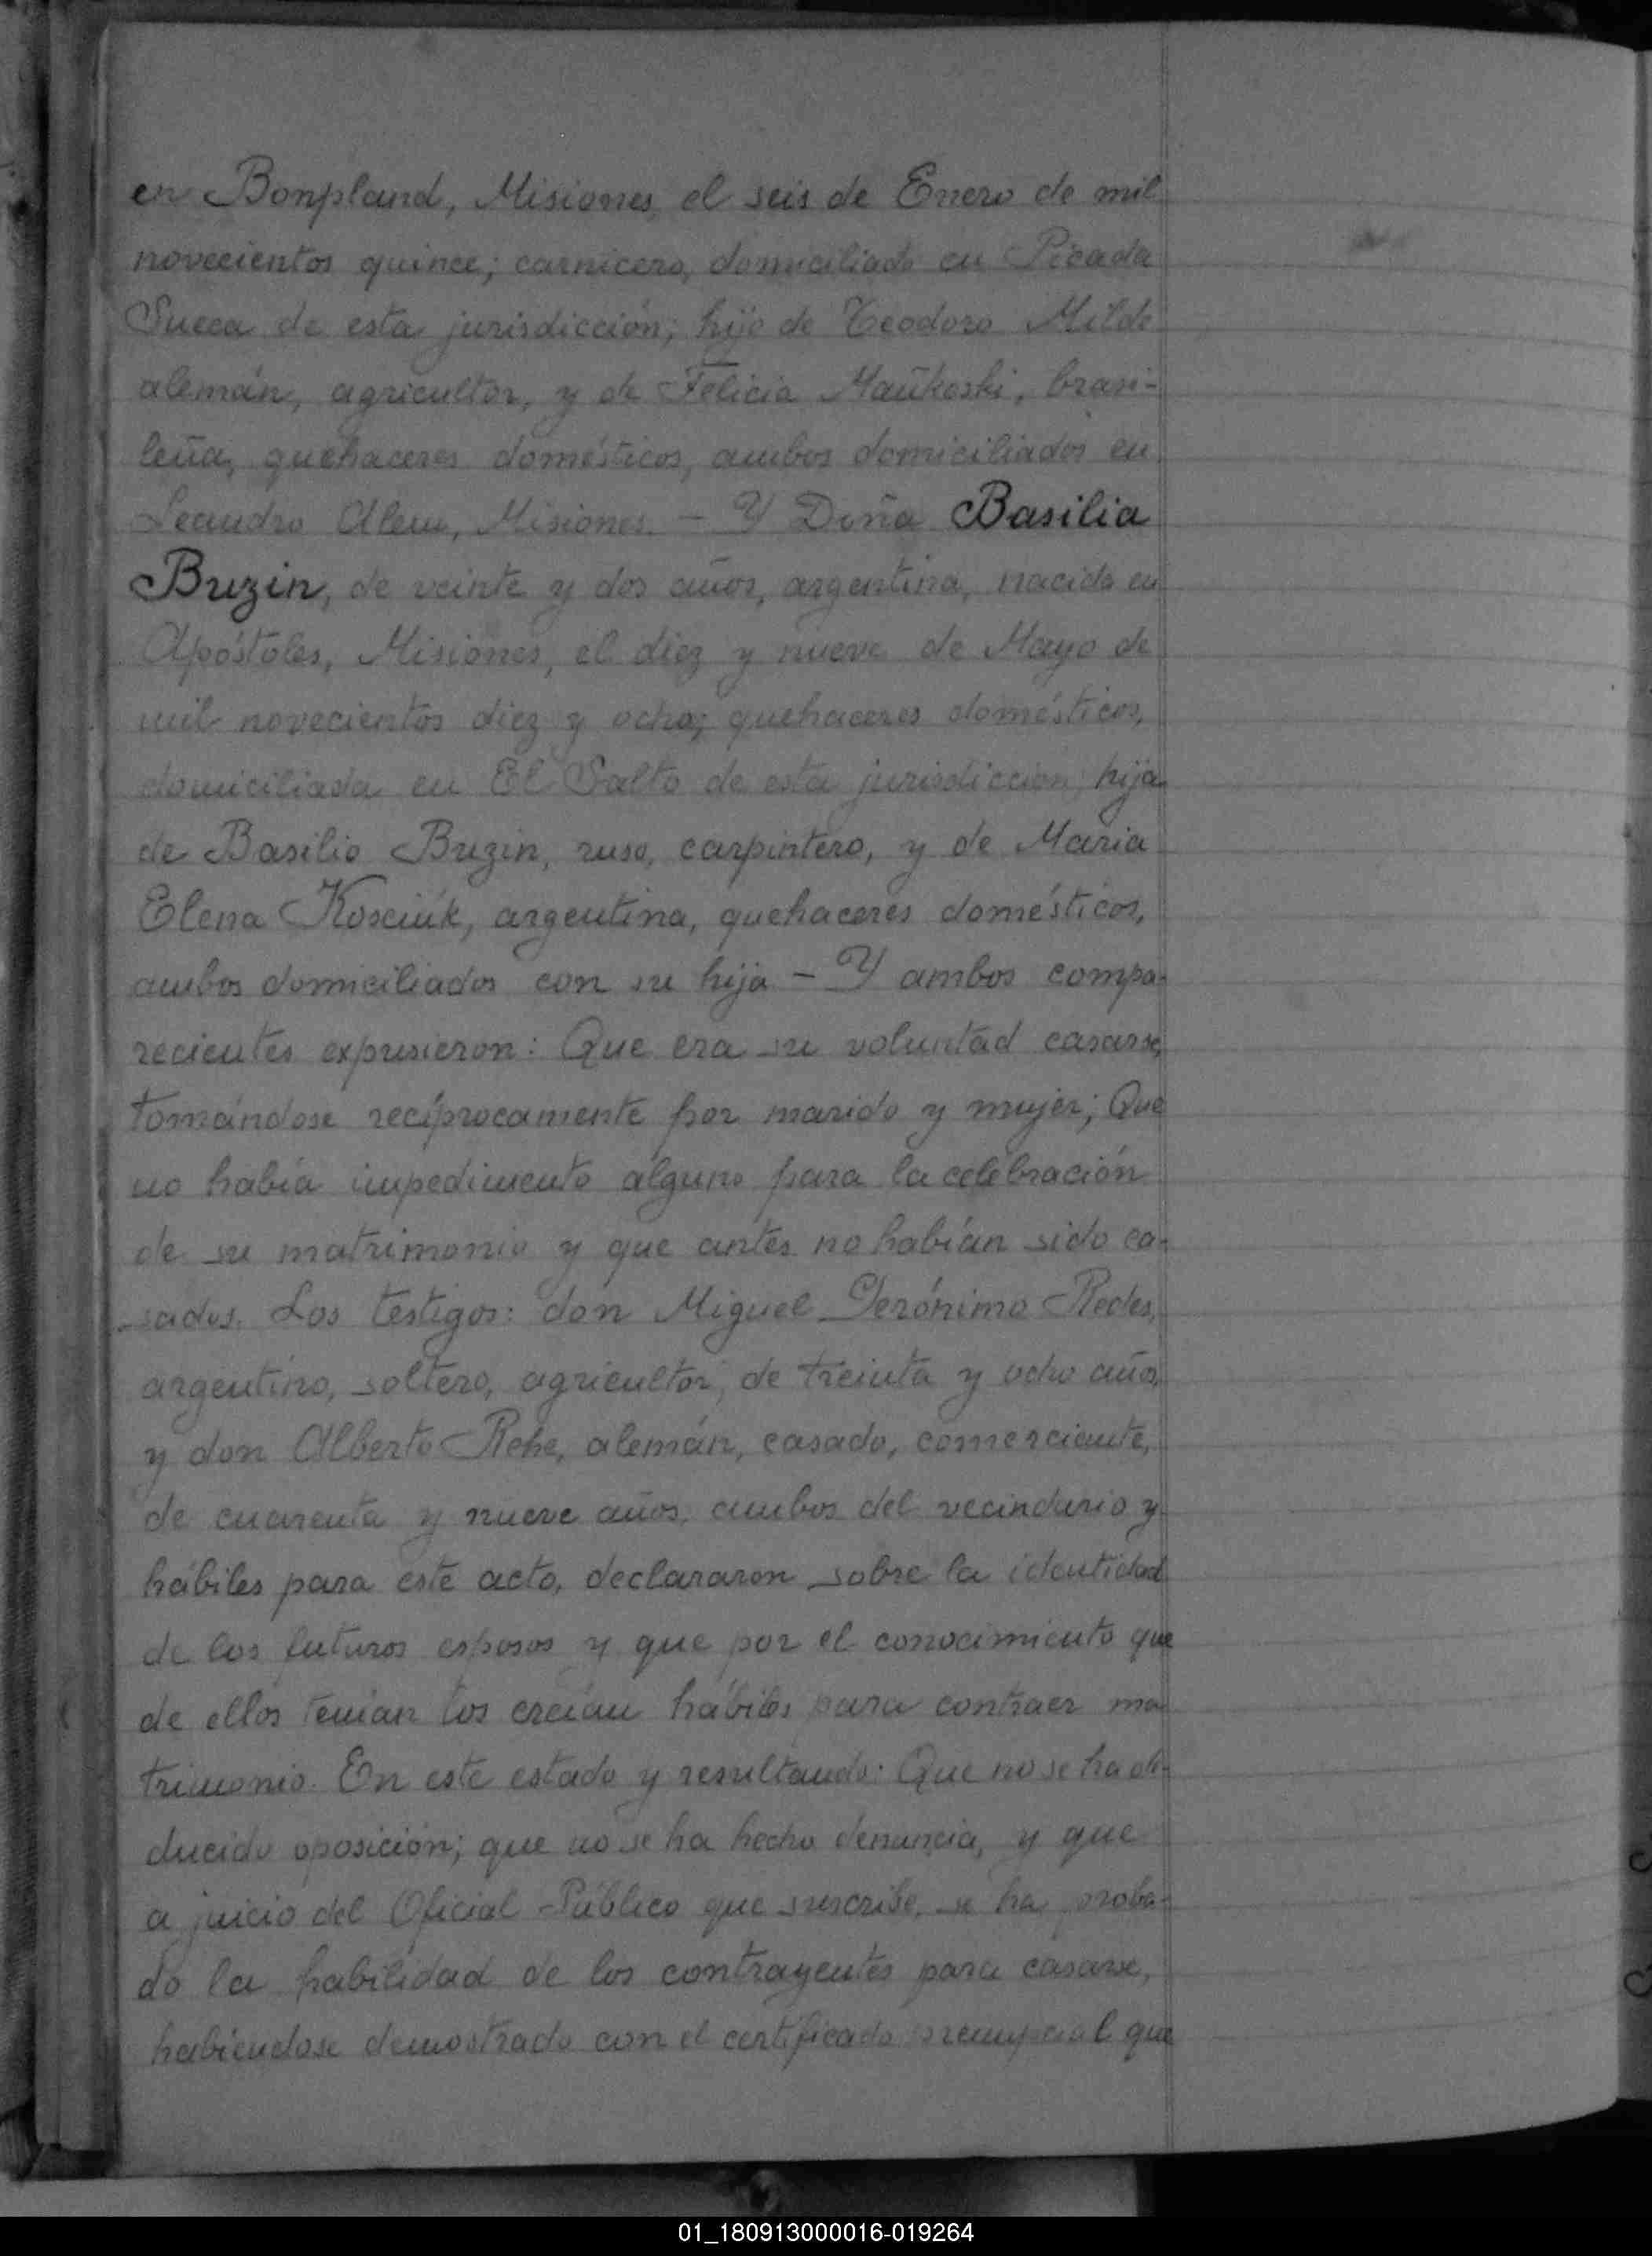 en Bonpland, Misiones, el seis de Enero de mil
novecientos quince; carnicero, domiciliado en Picada
Sueca de esta jurisdicción; hijo de Teodoro Milde
alemán, agricultor, y de Felicia Maūkoski, brasi-
leña, quehaceres domésticos, ambos domiciliados en
Leandro Alem, Misiones. - Y Doña Basilia
Buzin, de veinte y dos años, argentina, nacida en
Apóstoles, Misiones, el diez y nueve de Mayo de
mil novecientos diez y ocho; quehaceres domésticos,
domiciliada en El Salto de esta jurisdicción; hija
de Basilio Buzin, ruso, carpintero, y de Maria
Elena Kosciúk, argentina, quehaceres domésticos,
ambos domiciliados con su hija - Y ambos compa-
recientes expusieron: Que era su voluntad casarse,
tomándose recíprocamente por marido y mujer; Que
no había impedimento alguno para la celebración
de su matrimonio y que antes no habían sido ca-
sados. Los testigos: don Miguel Gerónimo Redes,
argentino, soltero, agricultor, de treinta y ocho años,
y don Alberto Rehe, alemán, casado, comerciante,
de cuarenta y nueve años, ambos del vecindario y
hábiles para este acto, declararon sobre la identidad
de los futuros esposos y que por el conocimiento que
de ellos tenían los creían hábiles para contraer ma
trimonio. En este estado y resultando: Que no se ha de-
ducido oposición; que no se ha hecho denuncia, y que
a juicio del Oficial Público que suscribe, se ha proba-
do la habilidad de los contrayentes para casarse,
habiéndose demostrado con el certificado prenupcial que
01_180913000016-019264